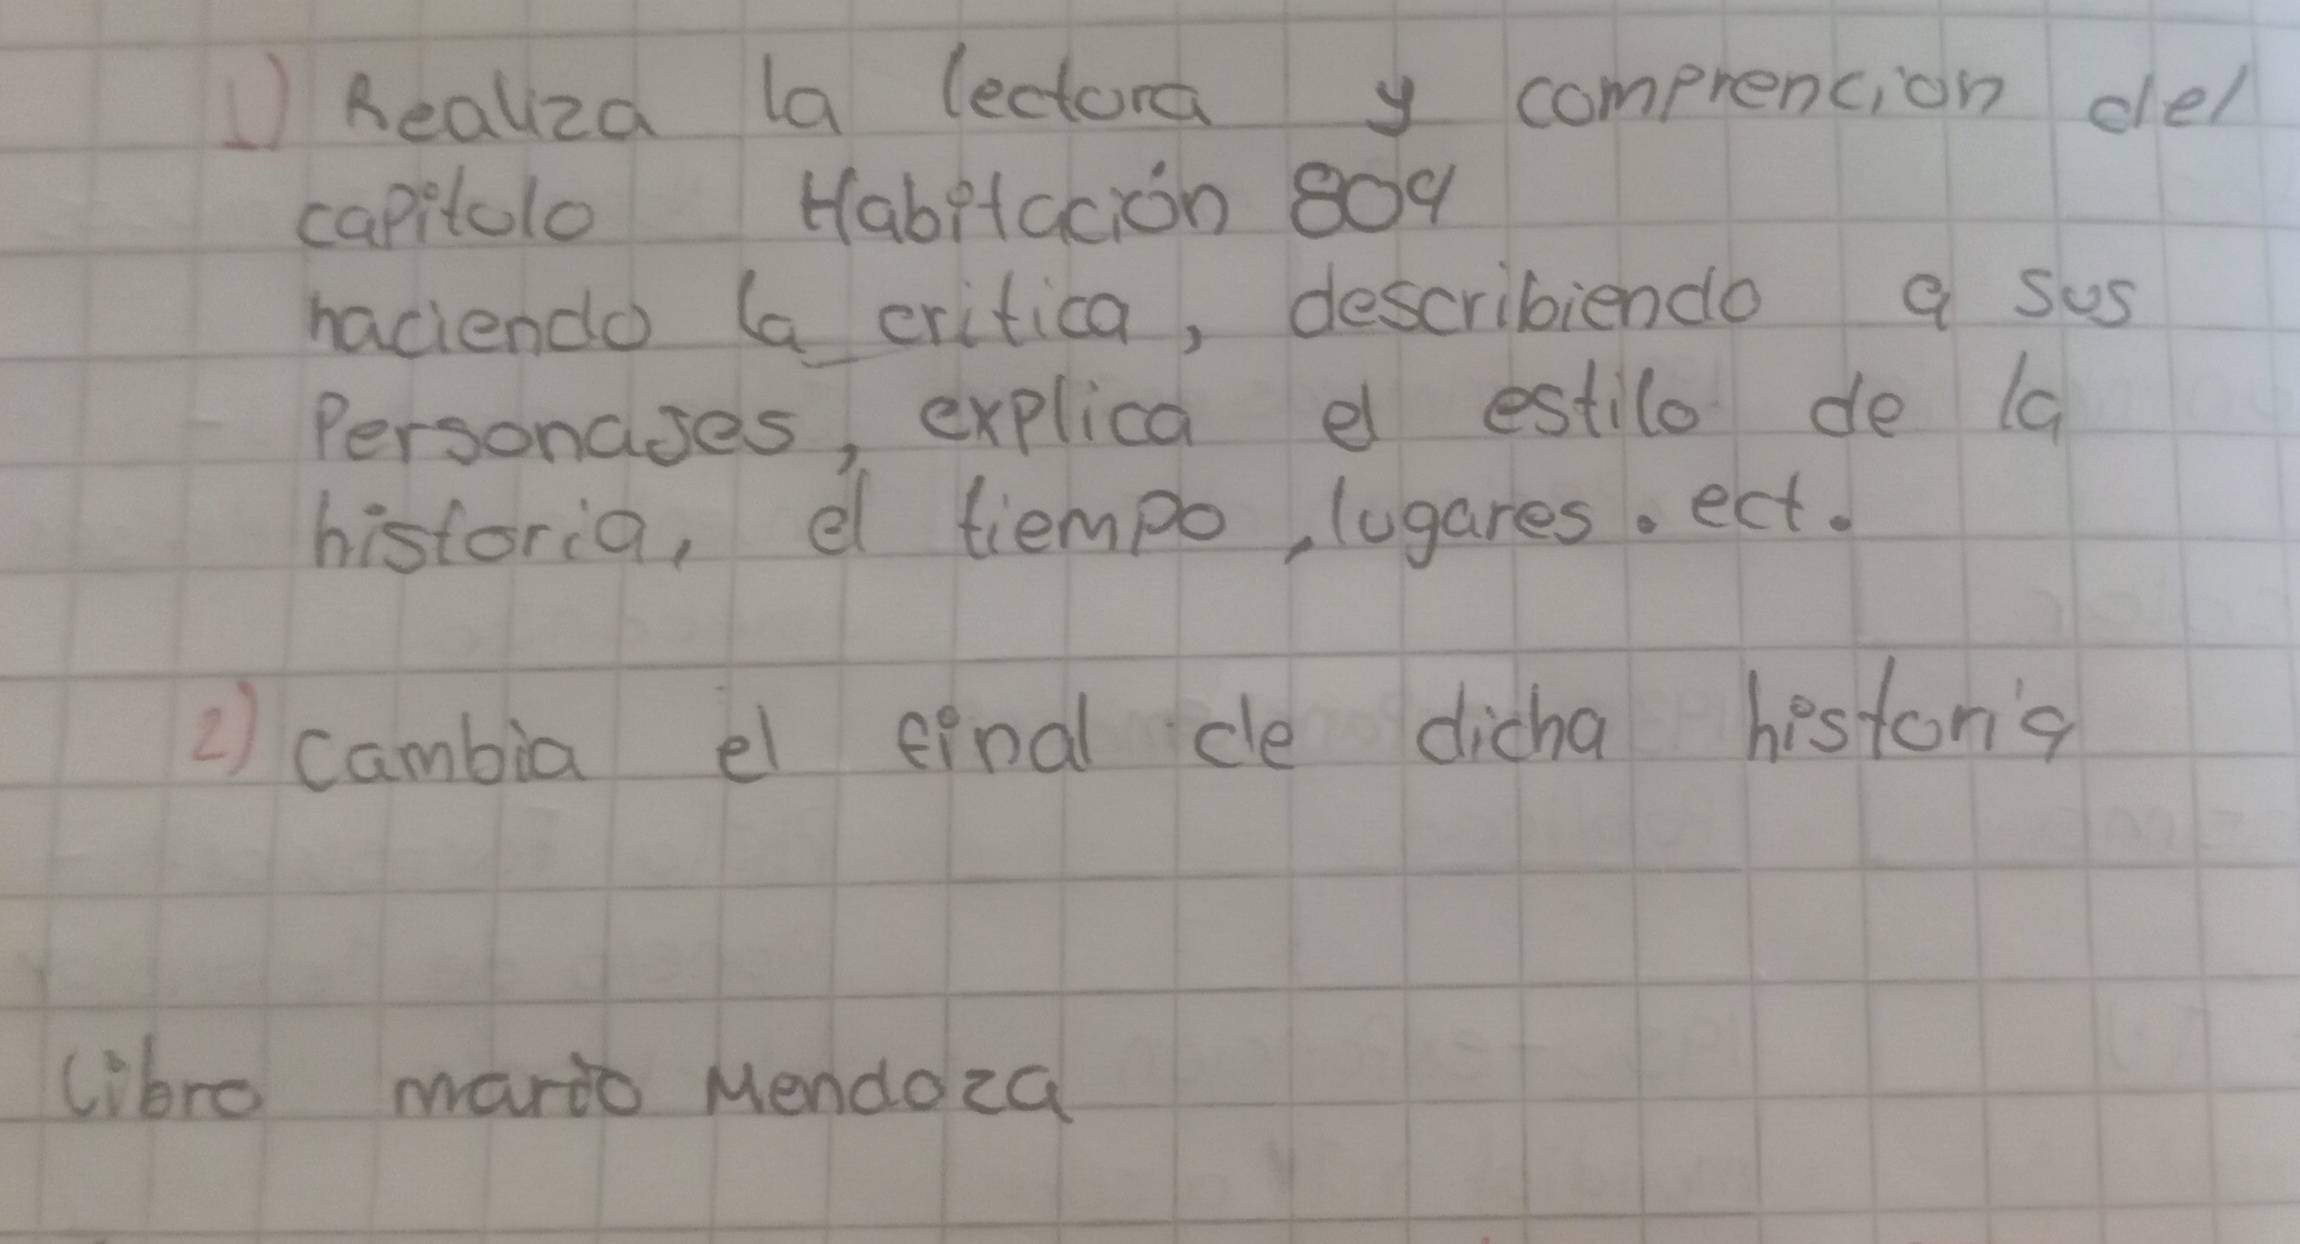 1) Realiza la lectora y comprencion del
capitulo Habitación 809
haciendo la critica, describiendo a sus
Personajes, explica el estilo de la
historia, el tiempo, lugares. ect.
2) Cambia el final de dicha historia
Libro mario Mendoza